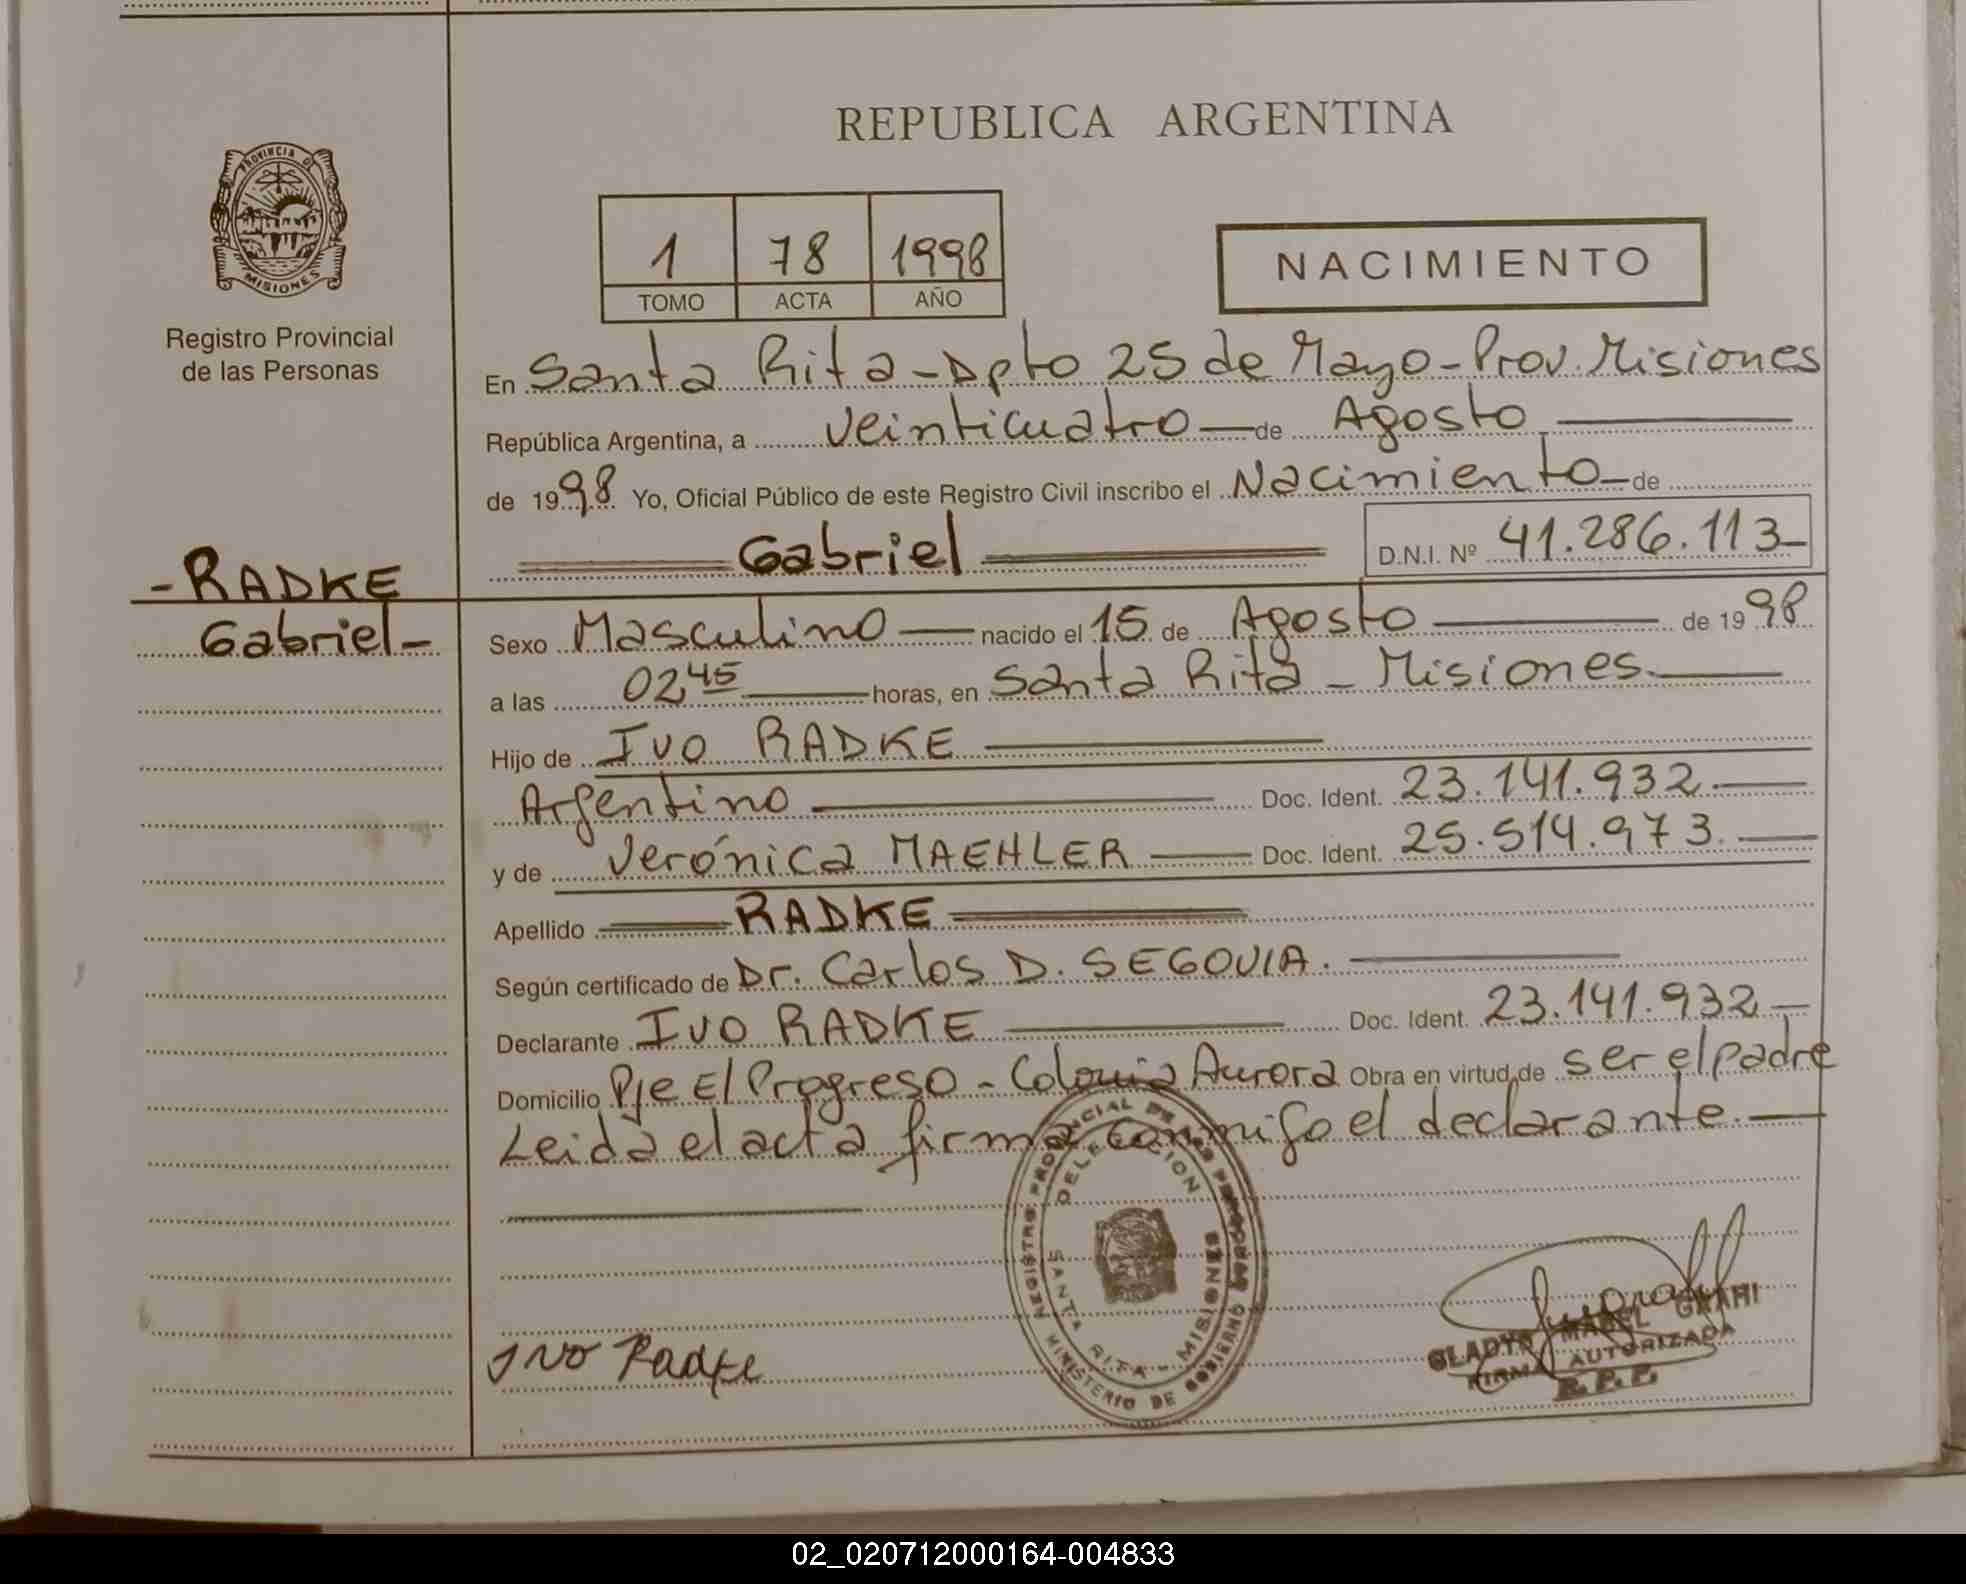 REPUBLICA ARGENTINA
PROVINCIA DE
MISIONES
Registro Provincial
de las Personas
1 78 1998
TOMO ACTA AÑO
NACIMIENTO
En Santa Rita - Dpto 25 de Mayo - Prov. Misiones
República Argentina, a veinticuatro — de Agosto —
de 1998 Yo, Oficial Público de este Registro Civil inscribo el Nacimiento — de
Gabriel
D.N.I. Nº 41.286.113-
- RADKE
Gabriel -
Sexo Masculino — nacido el 15 de Agosto — de 1998
a las 02 45 — horas, en Santa Rita - Misiones —
Hijo de Ivo RADKE —
Argentino — Doc. Ident. 23.141.932 —
y de Verónica MAEHLER — Doc. Ident. 25.514.973. —
Apellido RADKE
Según certificado de Dr. Carlos D. SEGOVIA. —
Declarante Ivo RADKE — Doc. Ident. 23.141.932 —
Domicilio Pje El Progreso - Colonia Aurora Obra en virtud de ser el padre
Leida el acta firma conmigo el declarante. —
REGISTRO PROVINCIAL DE LAS PERSONAS
DELEGACION
SANTA RITA - MISIONES
MINISTERIO DE GOBIERNO
Ivo Radke
GLADYS MABEL
FIRMA AUTORIZADA
R. P. P.
02_020712000164-004833